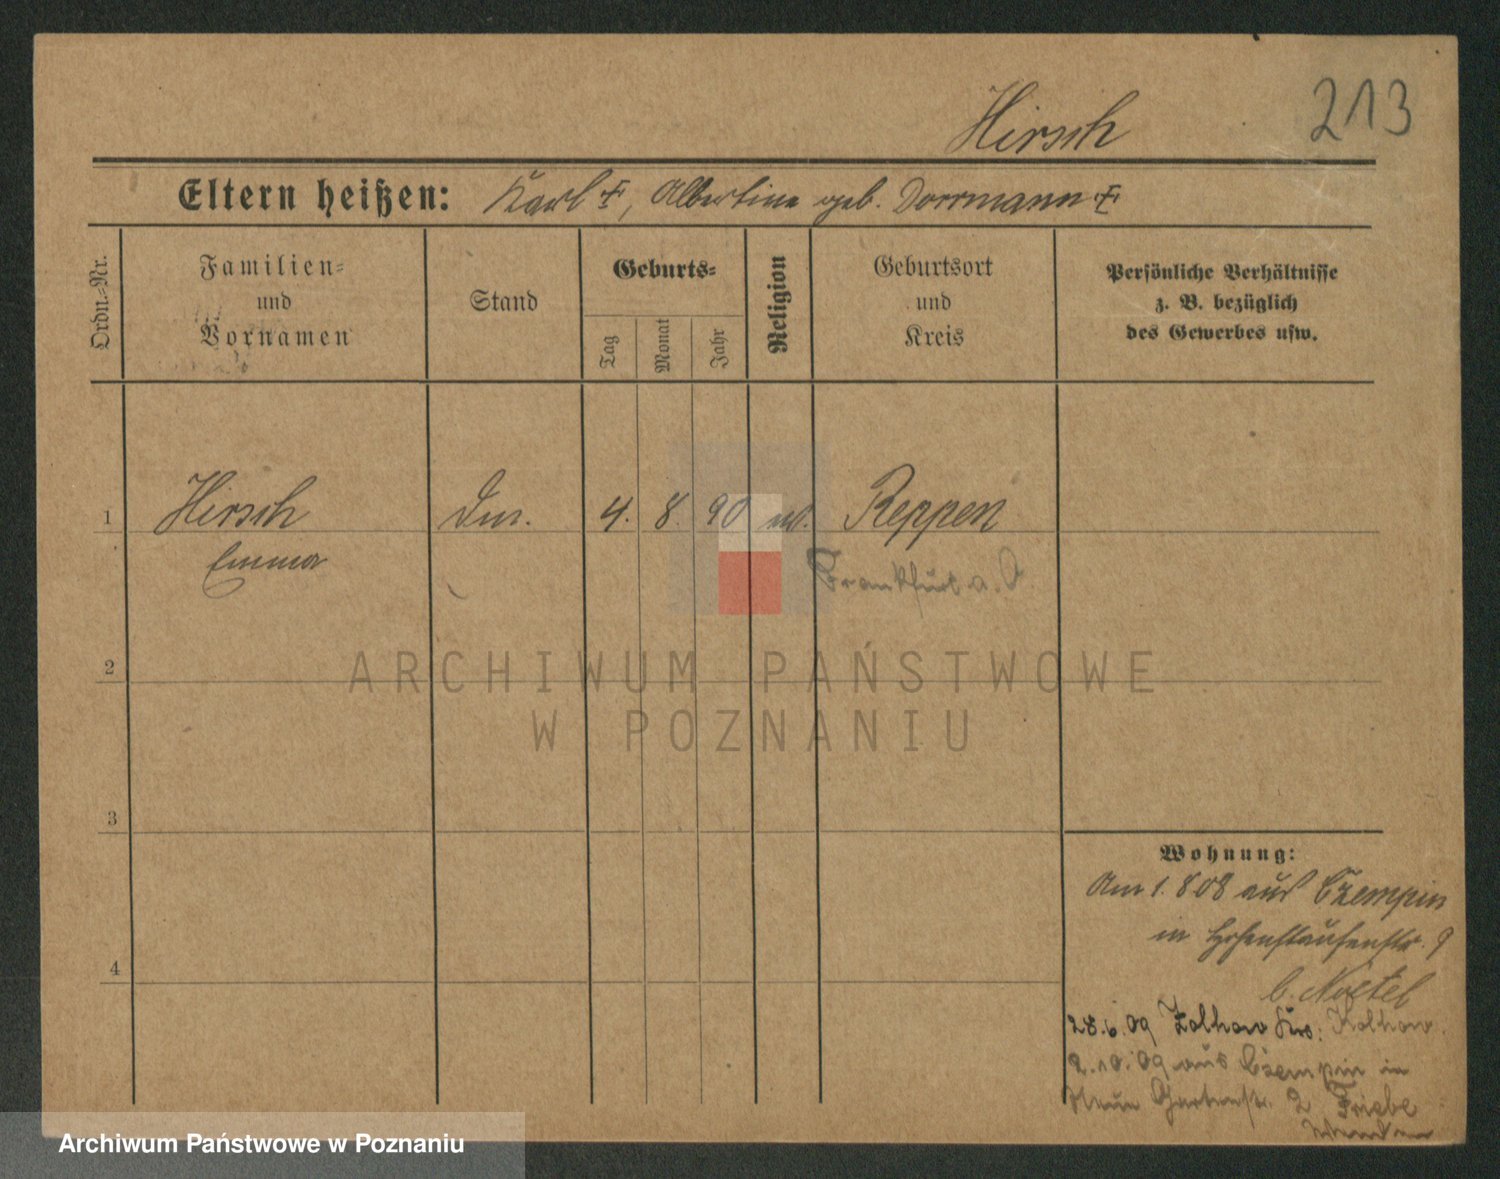 213
Hirsch
Eltern heißen: Karl †, Albertine geb. Dorrmann †
Ordn.-Nr.
Familien-
und
Vornamen
Stand
Geburts-
Tag
Monat
Jahr
Religion
Geburtsort
und
Kreis
Persönliche Verhältnisse
z. B. bezüglich
des Gewerbes usw.
1 Hirsch 4. 8. 90 Reppen
Emma
Frankfurt a. O
2
3
4
Wohnung:
Am 1. 8 08 aus Czempin
in Hohenstaufenstr. 9
b. Noetel
28.6.09
2.10.09 aus Czempin in
Neue Gartenstr. 2 Friebe
ARCHIWUM PAŃSTWOWE
W POZNANIU
Archiwum Państwowe w Poznaniu